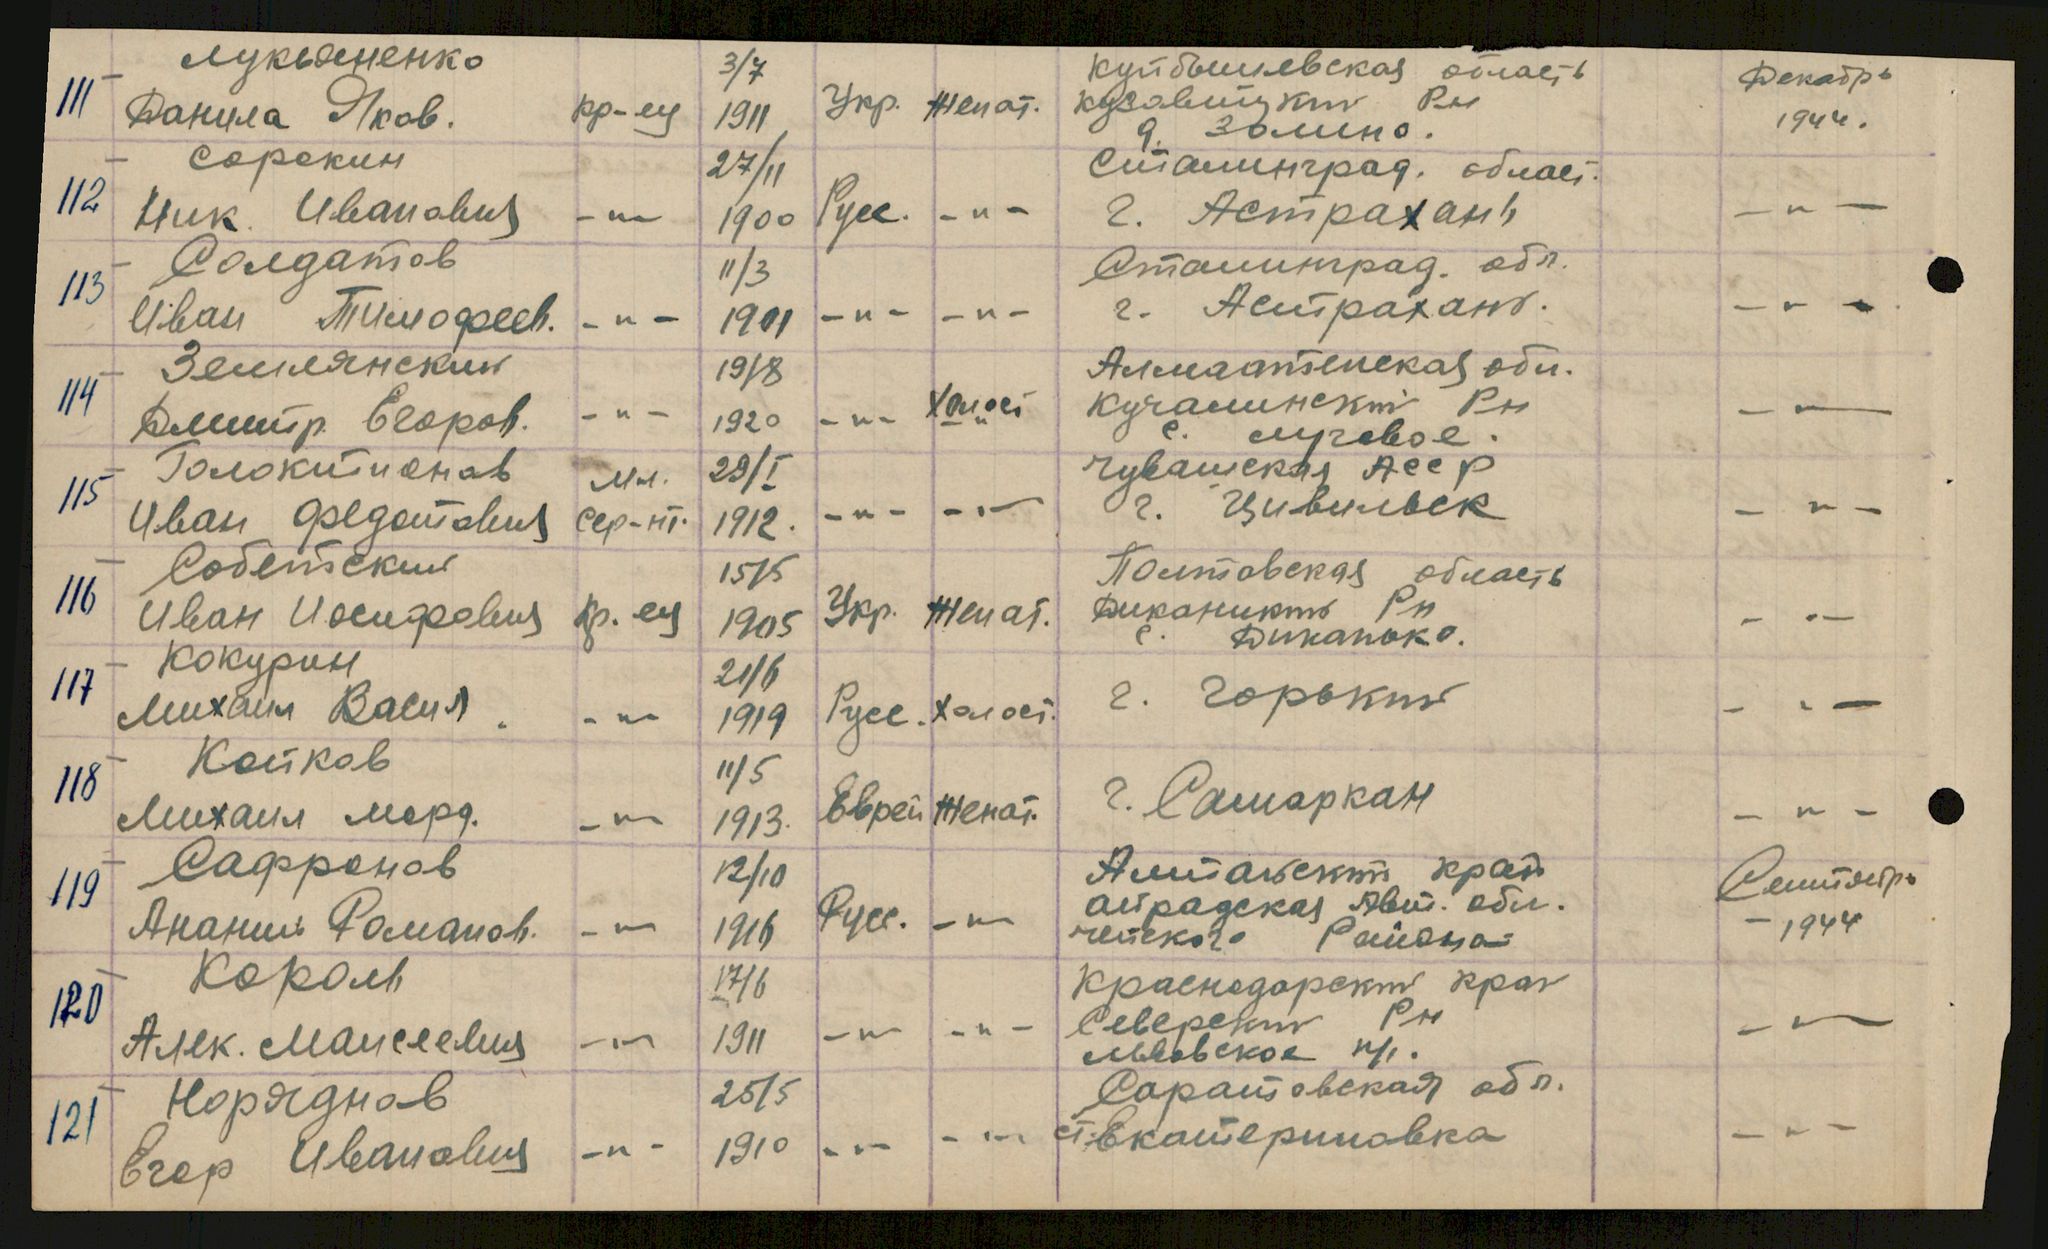 Лукьяненко 3/7 Куйбышевская область Декабрь
111 Данила Яков. кр-ец 1911 Укр. Женат. Рн 1944.
д. Золино.
Сорокин 27/11 Сталинград. област.
112 Ник. Иванович -"- 1900 Русс. -"- г. Астрахань -"-
Солдатов 11/3 Сталинград. обл.
113 Иван Тимофеев. -"- 1901 -"- -"- г. Астрахань. -"-
Землянский 19/8 Алмаатенская обл.
114 Дмитр. Егоров. -"- 1920 -"- Холост Рн -"-
с. Луговое.
Голокитионов мл. 29/I Чувашская АССР
115 Иван Федотович сер-нт. 1912. -"- -"- г. Цивильск -"-
Собетский 15/5 Полтовская область
116 Иван Иосифович Кр. ец 1905 Укр. Женат. Диканикий Рн -"-
с. Диканько.
Кокурин 21/6
117 Михаил Васил. -"- 1919 Русс. Холост. г. Горький -"-
Котков 11/5
118 Михаил Морд. -"- 1913. Еврей Женат. г. Самаркан -"-
Сафронов 12/10 Алтайский край Сентябрь
119 Ананий Романов. -"- 1916 Русс. -"- Авт. обл. - 1944
Района
Король 17/6 Краснодарский край
120 Алек. Моисеевич -"- 1911 -"- -"- Северский Рн -"-
Львовское п/о.
Норяднов 25/5 Саратовская обл.
121 Егор Иванович -"- 1910 -"- -"- ст. Екатериновка -"-